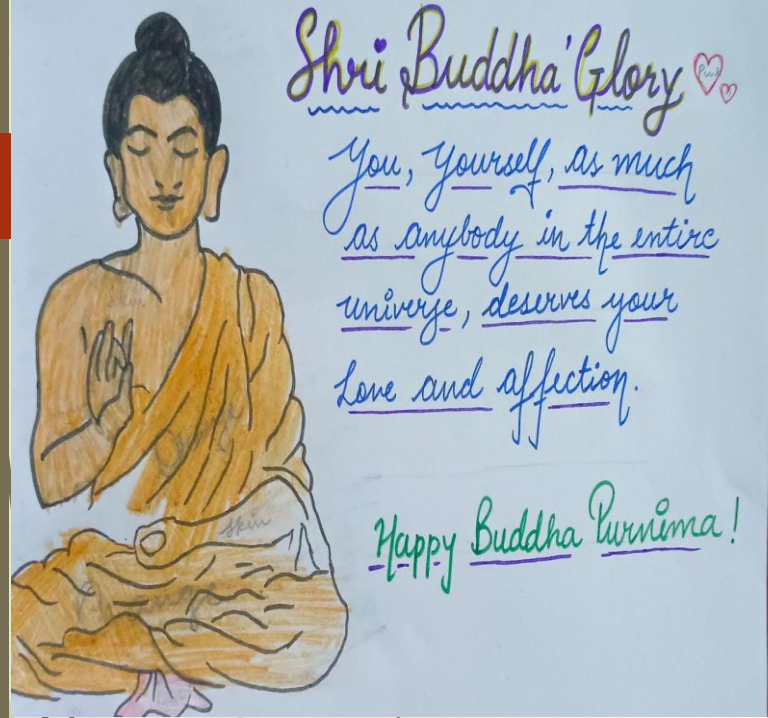 Shri Buddha' Glory
You, Yourself, as much
as anybody in the entire
universe, deserves your
Love and affection.
Happy Buddha Purnima!
Skin
Orange
Skin
Orange